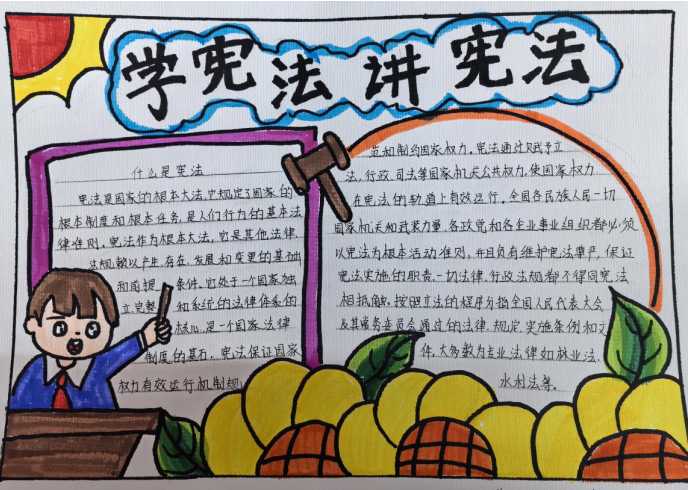 学宪法 讲宪法
什么是宪法
宪法是国家的根本大法,它规定了国家的
根本制度和根本任务,是人们行为的基本法
律准则。宪法作为根本大法,它是其他法律
法规赖以产生、存在、发展和变更的基础
和前提条件,它处于一个国家独
立完整和系统的法律体系的
核心,是一个国家法律
制度的基石。宪法保证国家
权力有效运行机制规
范和制约国家权力。宪法通过赋予立
法、行政、司法等国家机关公共权力,使国家权力
在宪法的轨道上有效运行。全国各民族人民一切
国家机关和武装力量、各政党和各企业事业组织都必须
以宪法为根本活动准则,并且负有维护宪法尊严,保证
宪法实施的职责。一切法律、行政法规都不得同宪法
相抵触。按照立法的程序为指全国人民代表大会
及其常务委员会通过的法律、规定、实施条例和文
件,大多数为专业法律如林业法、
水利法等。